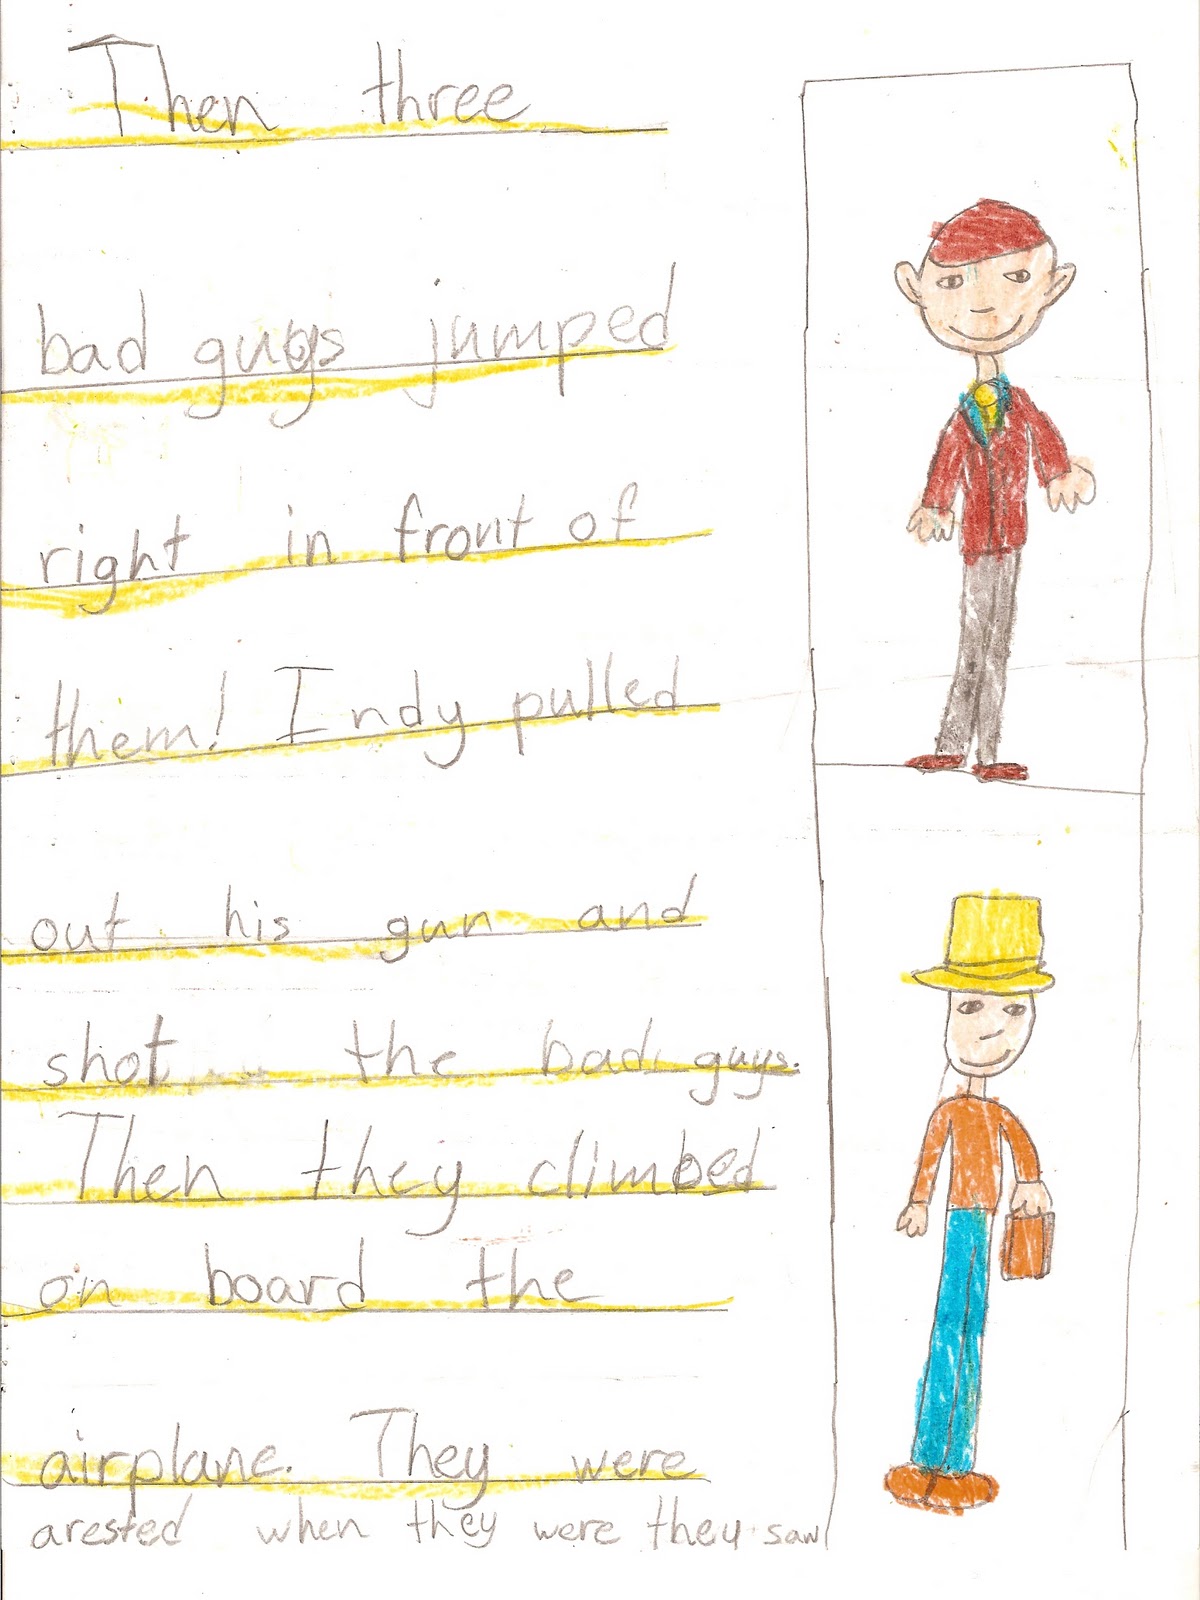 Then three
bad guys jumped
right in front of
them! Indy pulled
out his gun and
shot the bad guys.
Then they climbed
on board the
airplane. They were
arested when they were they saw